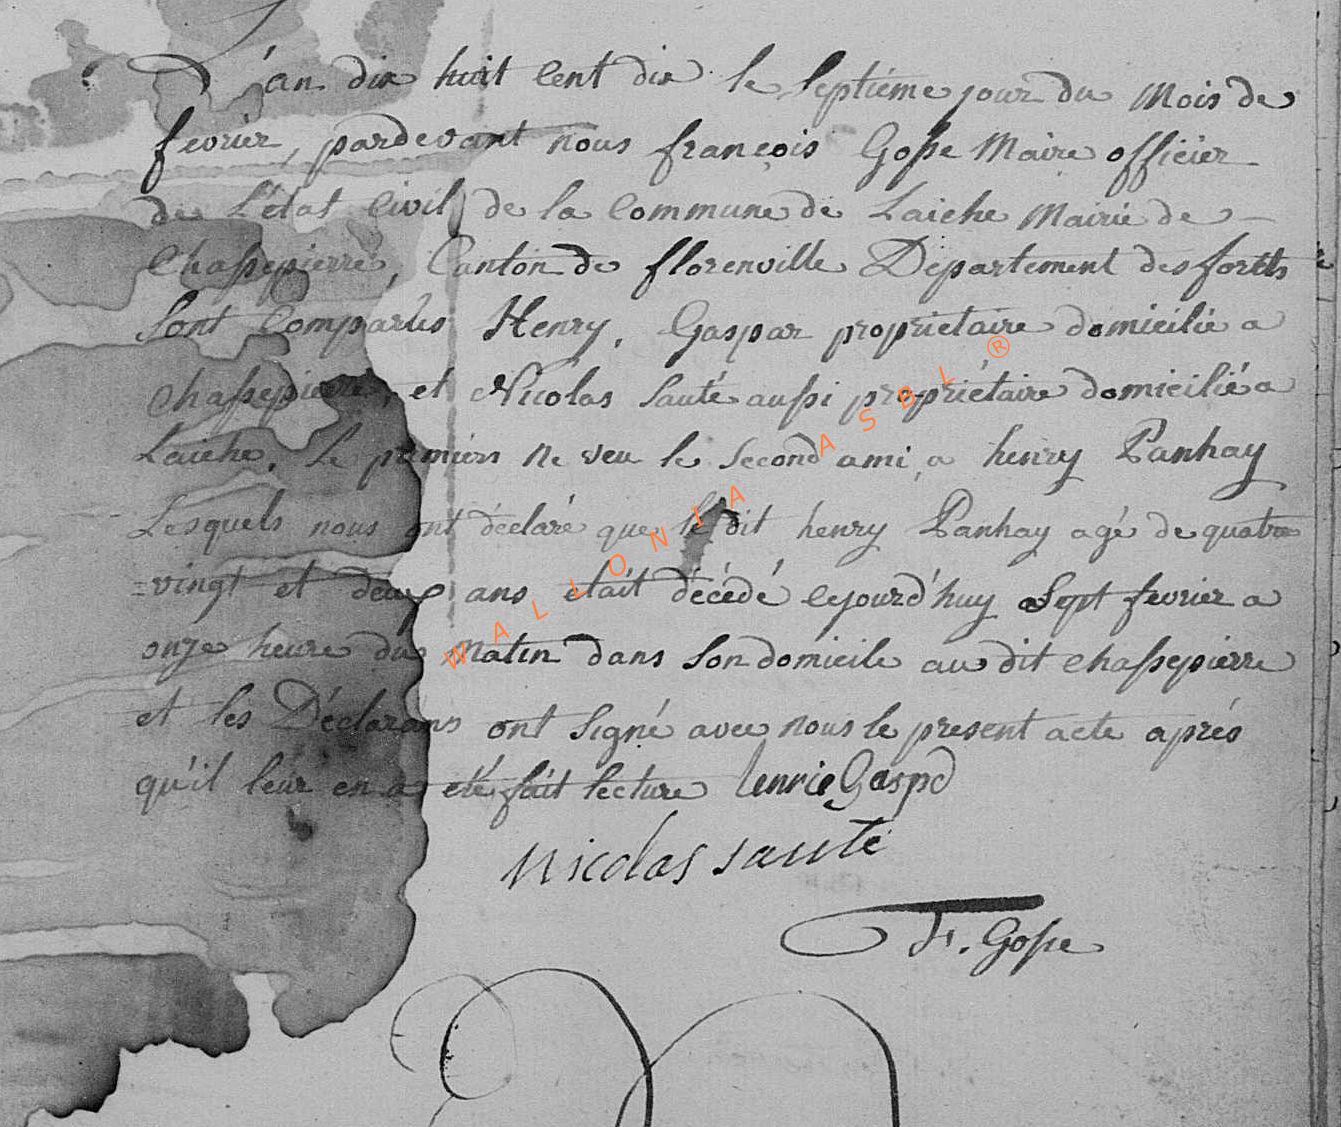 L'an dix huit Cent dix le septiéme jour du mois de
fevrier, pardevant nous françois Gosse Maire officier
de L'état Civil de la Commune de Laiche Mairie de
Chassepierre, Canton de florenville Département des forets
Sont Comparus Henry, Gaspar propriétaire domicilié a
Chassepierre, et Nicolas Sauté aussi propriétaire domicilié a
Laiche, Le premiers ne veu le Second ami, a henry Panhay
Lesquels nous ont déclaré que le dit henry Panhay agé de quatre
=vingt et deux ans etait décédé cejourd'huy Sept fevrier a
onze heure du Matin dans Son domicile au dit chassepierre
et les Déclarans ont Signé avec nous le present acte aprés
qu'il leur en a eté fait lecture henrie Gaspd
Nicolas sauté
F. Gosse
WALLONIA ASBL ®